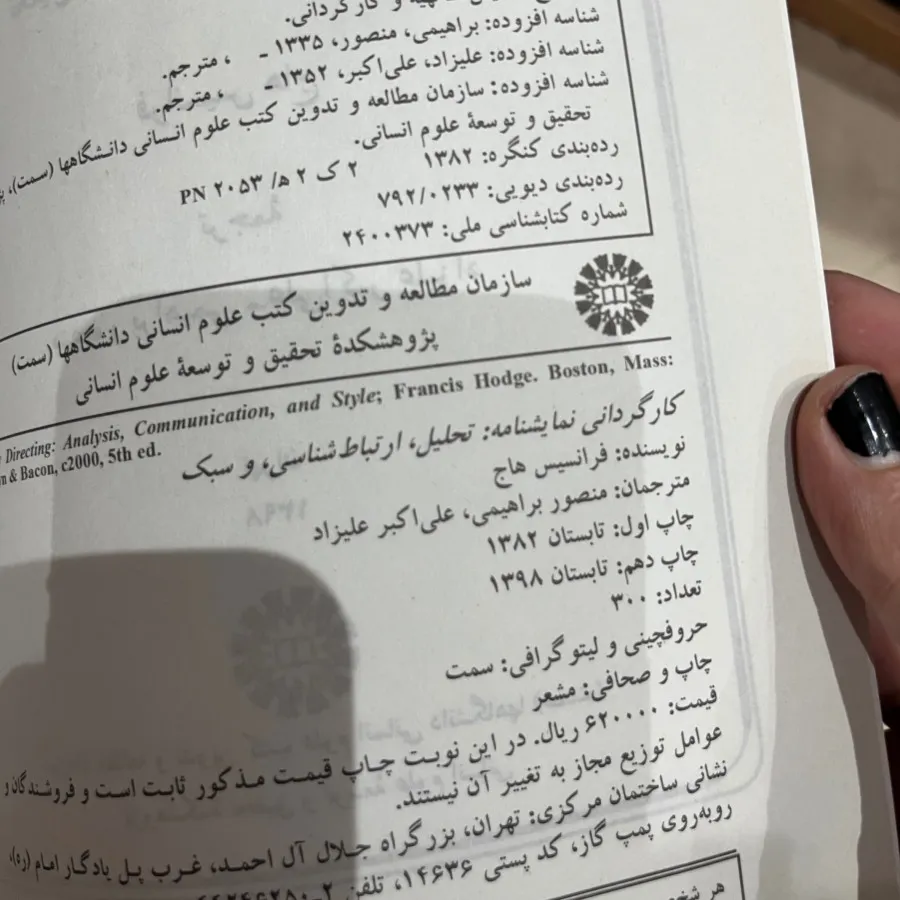 و کارگردانی.
شناسه افزوده: براهیمی، منصور، ۱۳۳۵ ـ ، مترجم.
شناسه افزوده: علیزاد، علی‌اکبر، ۱۳۵۲ ـ ، مترجم.
شناسه افزوده: سازمان مطالعه و تدوین کتب علوم انسانی دانشگاهها (سمت)،
تحقیق و توسعهٔ علوم انسانی.
رده‌بندی کنگره: ۱۳۸۲ ۲ ک ۲ ه/ ۲۰۵۳ PN
رده‌بندی دیویی: ۷۹۲/۰۲۳۳
شماره کتابشناسی ملی: ۲۴۰۰۳۷۳
سازمان مطالعه و تدوین کتب علوم انسانی دانشگاهها (سمت)
پژوهشکدهٔ تحقیق و توسعهٔ علوم انسانی
Directing: Analysis, Communication, and Style; Francis Hodge. Boston, Mass:
& Bacon, c2000, 5th ed.
کارگردانی نمایشنامه: تحلیل، ارتباط‌شناسی، و سبک
نویسنده: فرانسیس هاج
مترجمان: منصور براهیمی، علی‌اکبر علیزاد
چاپ اول: تابستان ۱۳۸۲
چاپ دهم: تابستان ۱۳۹۸
تعداد: ۳۰۰
حروفچینی و لیتوگرافی: سمت
چاپ و صحافی: مشعر
قیمت: ۶۲۰۰۰۰ ریال. در این نوبت چاپ قیمت مذکور ثابت است و فروشندگان و
عوامل توزیع مجاز به تغییر آن نیستند.
نشانی ساختمان مرکزی: تهران، بزرگراه جلال آل احمد، غرب پل یادگار امام (ره)،
روبه‌روی پمپ گاز، کد پستی ۱۴۶۳۶، تلفن
هر